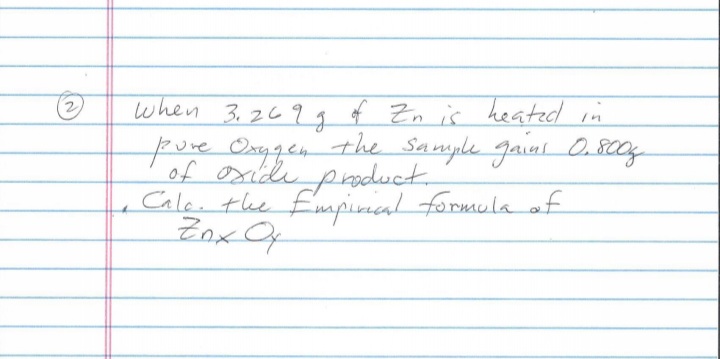 ② When 3.269 g of Zn is heated in
pure Oxygen the sample gains 0.800g
of oxide product.
. Calc. the Empirical formula of
ZnxOy